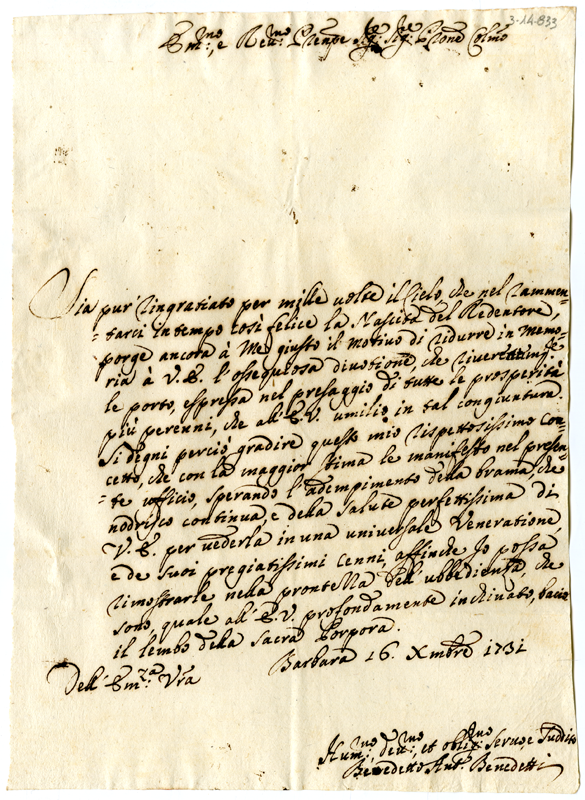 3-14-833
Em:no, e Reu:mo Prenpe Sig:r Sig:r Prone Colmo
Sia pur' ringratiato per mille uolte il Cielo, che nel rammen=
=tarci in tempo così felice la Nascita del Redentore,
porge ancora à Me giusto il motiuo di ridurre in Memo=
ria à V. E. l'ossequiosa diuotione, che riuerentem:te
le porto, espressa nel presaggio di tutte le prosperità
più perenni, che all'E. V. umilio in tal congiuntura.
Si degni perciò gradire questo mio rispettosissimo Con=
cetto, che con la maggior stima le manifesto nel presen=
=te ufficio, sperando l'adempimento della brama, che
nodrisco continua, e della salute perfettissima di
V. E. per uederla in una uniuersale Veneratione,
e de suoi pregiatissimi cenni, affinche Io possa
rimostrarle nella prontezza dell'ubbedienza, che
sono, quale all'E. V. profondamente inchinato, bacio
il lembo della Sacra Porpora.
Barbara 16. Xmbre 1731
Dell'Em:za Vra
Hum:mo, deu:mo, et obligmo Seruo, e Suddito
Benedetto Ant.o Benedetti